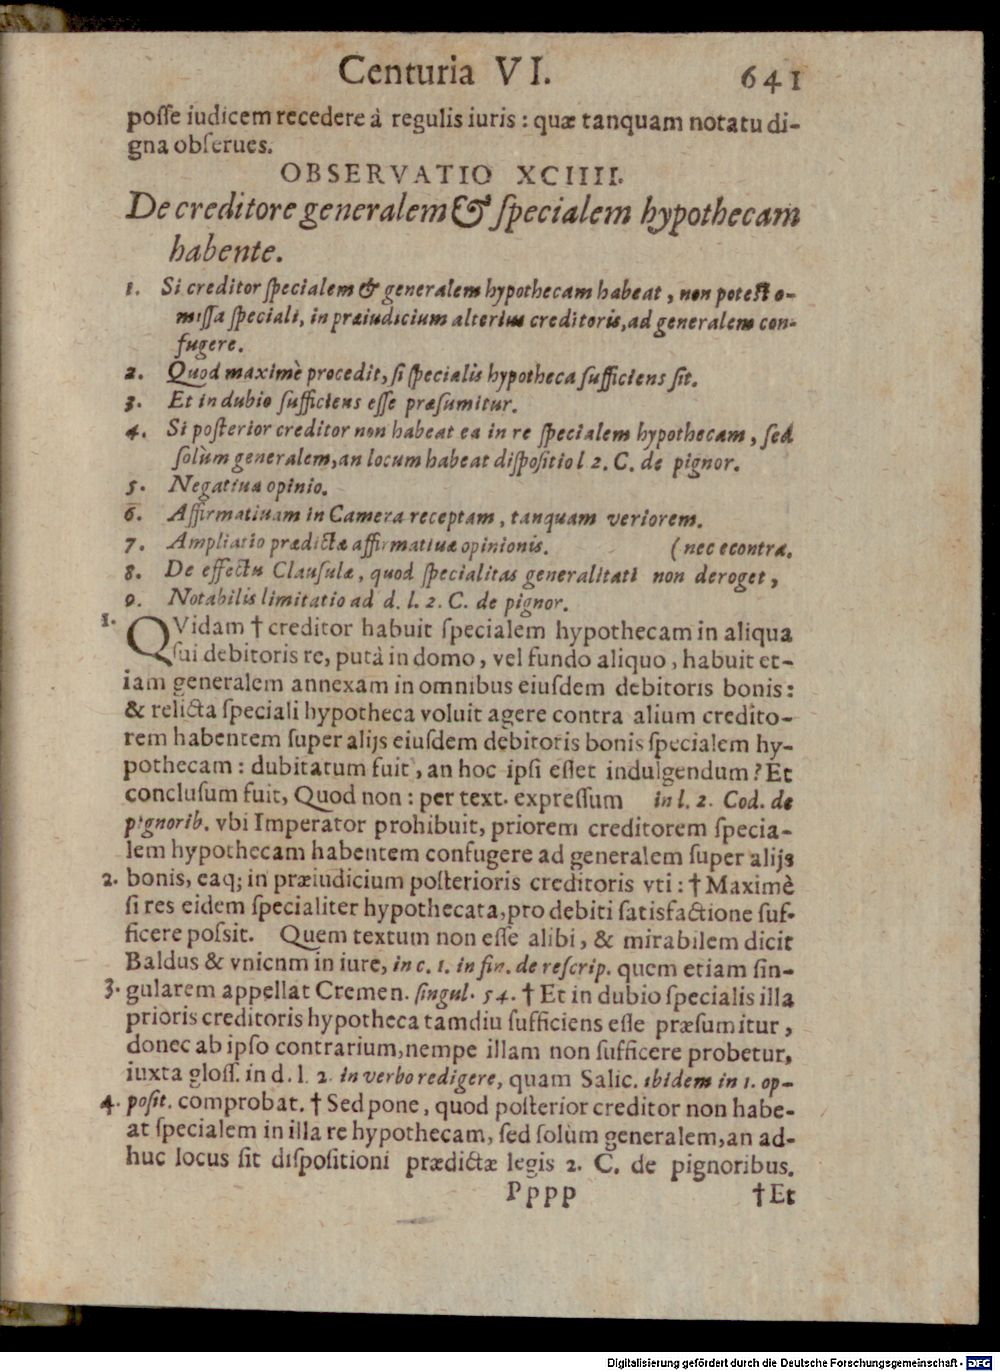 Centuria VI. 641
posse iudicem recedere à regulis iuris : quæ tanquam notatu di-
gna obserues.
OBSERVATIO XCIIII.
De creditore generalem & specialem hypothecam
habente.
1. Si creditor specialem & generalem hypothecam habeat, non potest o-
missa speciali, in præiudicium alterius creditoris, ad generalem con-
fugere.
2. Quod maximè procedit, si specialis hypotheca sufficiens sit.
3. Et in dubio sufficiens esse præsumitur.
4. Si posterior creditor non habeat ea in re specialem hypothecam, sed
solùm generalem, an locum habeat dispositio l 2. C. de pignor.
5. Negatiua opinio.
6. Affirmatiuam in Camera receptam, tanquam veriorem.
7. Ampliatio prædictæ affirmatiuæ opinionis. (nec econtra.
8. De effectu Clausulæ, quod specialitas generalitati non deroget,
9. Notabilis limitatio ad d. l. 2. C. de pignor.
1. QVidam † creditor habuit specialem hypothecam in aliqua
sui debitoris re, putà in domo, vel fundo aliquo, habuit et-
iam generalem annexam in omnibus eiusdem debitoris bonis:
& relicta speciali hypotheca voluit agere contra alium credito-
rem habentem super alijs eiusdem debitoris bonis specialem hy-
pothecam : dubitatum fuit, an hoc ipsi esset indulgendum? Et
conclusum fuit, Quod non : per text. expressum in l. 2. Cod. de
pignorib. vbi Imperator prohibuit, priorem creditorem specia-
lem hypothecam habentem confugere ad generalem super alijs
2. bonis, eaq; in præiudicium posterioris creditoris vti : † Maximè
si res eidem specialiter hypothecata, pro debiti satisfactione suf-
ficere possit. Quem textum non esse alibi, & mirabilem dicit
Baldus & vnicnm in iure, in c. 1. in fin. de rescrip. quem etiam sin-
3. gularem appellat Cremen. singul. 54. † Et in dubio specialis illa
prioris creditoris hypotheca tamdiu sufficiens esse præsumitur,
donec ab ipso contrarium, nempe illam non sufficere probetur,
iuxta gloss. in d. l. 2. in verbo redigere, quam Salic. ibidem in 1. op-
4. posit. comprobat. † Sed pone, quod posterior creditor non habe-
at specialem in illa re hypothecam, sed solùm generalem, an ad-
huc locus sit dispositioni prædictæ legis 2. C. de pignoribus.
Pppp †Et
Digitalisierung gefördert durch die Deutsche Forschungsgemeinschaft - DFG